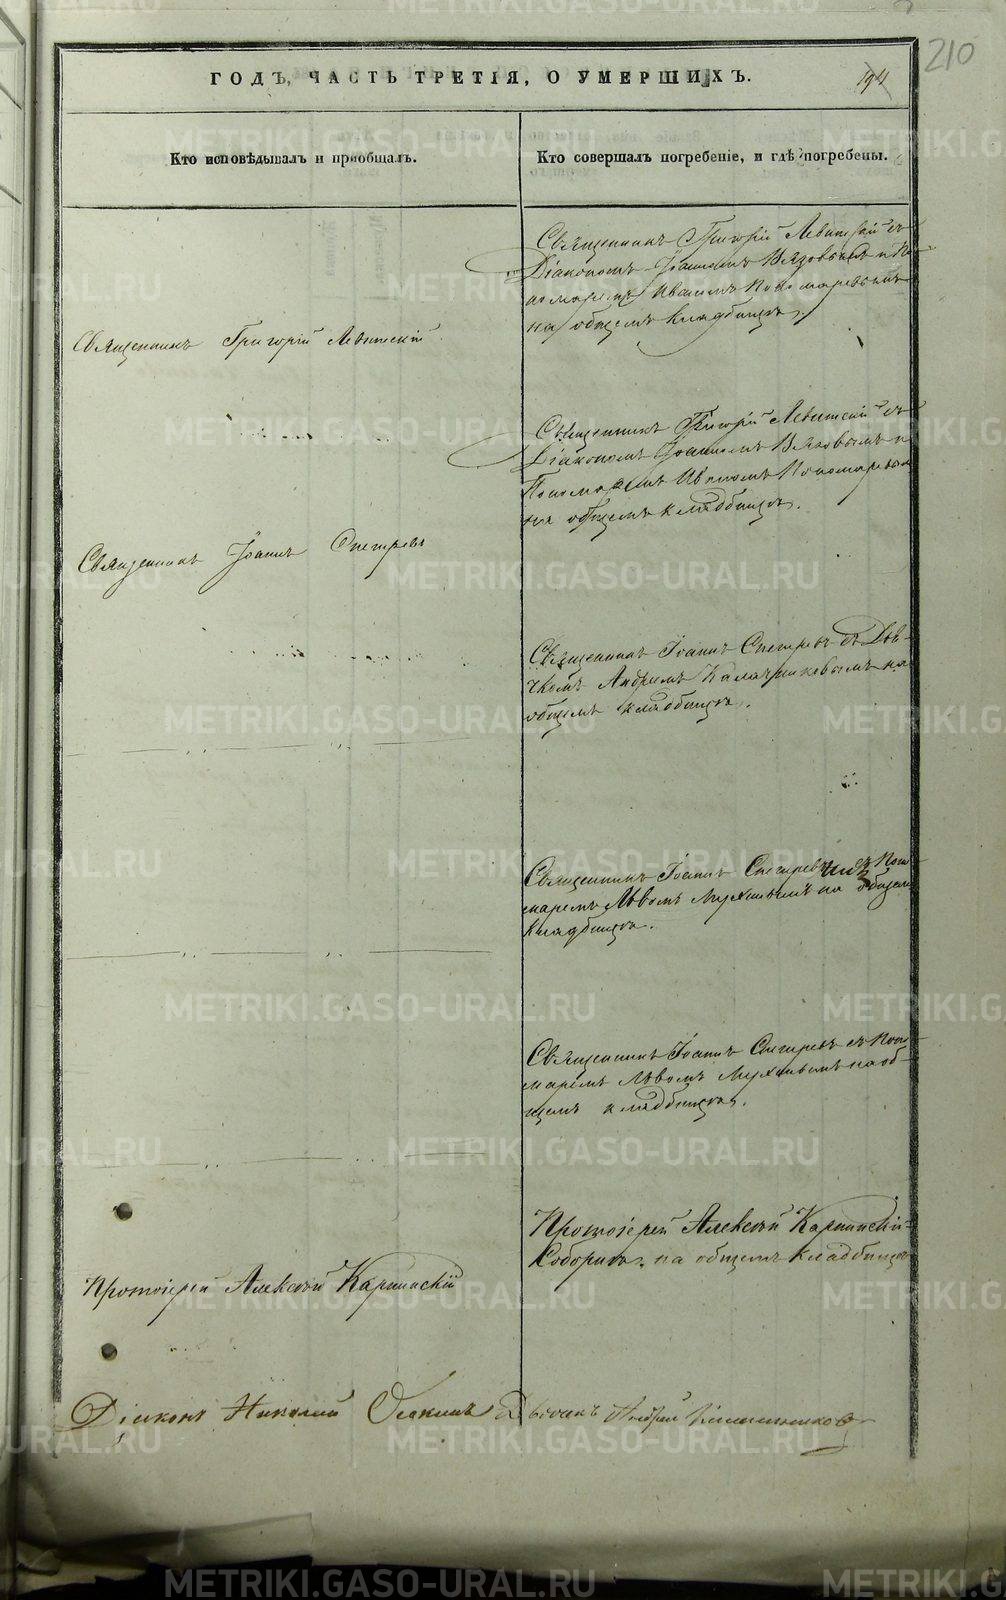 210
ГОДЪ, ЧАСТЬ ТРЕТІЯ, О УМЕРШИХЪ.
194
Кто исповѣдывалъ и пріобщалъ.
Кто совершалъ погребеніе, и гдѣ погребены.
Священникъ Григорій Левитскій съ
Діакономъ Іоанномъ Вязовымъ и По
номаремъ Иваномъ Пономаревымъ
на общемъ кладбищѣ.
Священникъ Григорій Левитскій
Священникъ Григорій Левитскій съ
Діакономъ Іоанномъ Вязовымъ и
Пономаремъ Иваномъ Пономаревым
на общемъ кладбищѣ.
Священникъ Іоаннъ Снегиревъ
Священникъ Іоаннъ Снегиревъ съ Дья-
чкомъ Андреемъ Калачниковымъ на
общемъ кладбищѣ.
Священникъ Іоаннъ Снегиревъ съ Поно
маремъ Львомъ на общемъ
кладбищѣ.
Священникъ Іоаннъ Снегиревъ съ Поно
маремъ Львомъ на об-
щемъ кладбищѣ.
Протоіерей Алексѣй Карпинскій
Соборнѣ. на общемъ кладбищѣ
Протоіерей Алексѣй Карпинскій
Діаконъ Николай Дьячекъ Андрей
METRIKI.GASO-URAL.RU